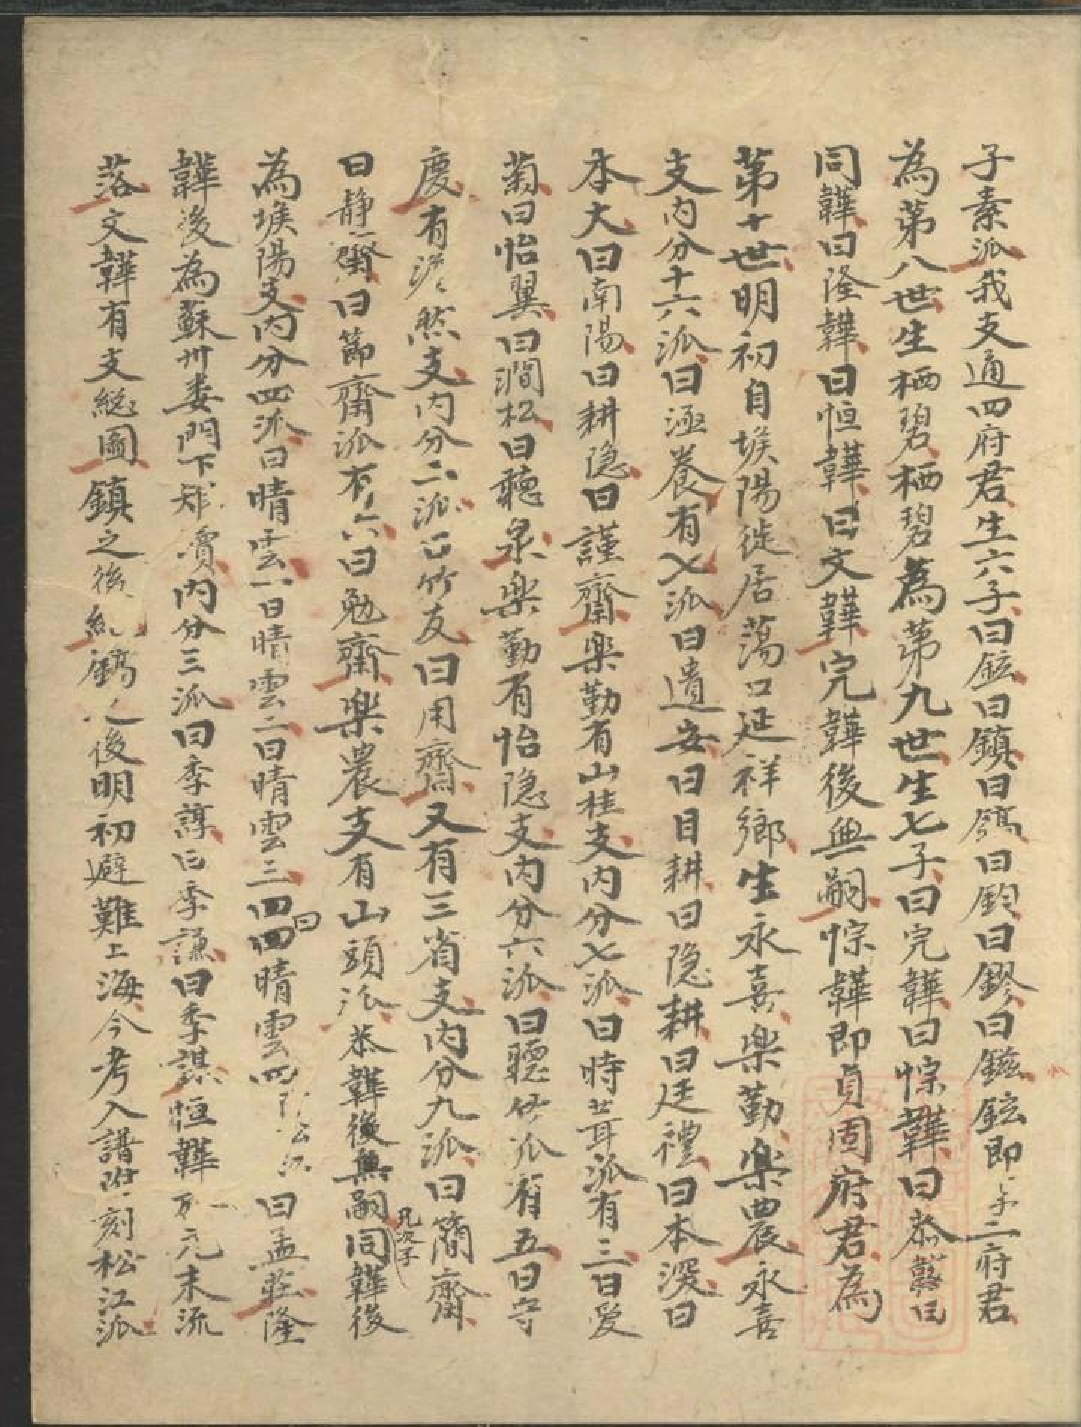 子素派我支通四府君生六子曰鉉曰鎮曰鎬曰鈞曰鏐曰鎡鉉即二府君
為第八世生栖碧栖碧為第九世生七子曰完韡曰悰韡曰恭韡曰
同韡曰隆韡曰恒韡曰文韡完韡後無嗣悰韡即貞固府君為
第十世明初自堠陽徙居蕩口延祥鄉生永喜樂勤樂農永喜
支内分十六派曰逕養有七派曰遺安曰目耕曰隐耕曰廷禮曰本深曰
本大曰南陽曰耕隐曰謹齋樂勤有山桂支内分七派曰時葺派有三曰爱
菊曰怡翼曰澗松曰聽泉樂勤有怡隐支内分六派曰聽竹派有五曰守
慶有澹然支内分二派曰竹友曰用齋又有三省支内分九派曰簡齋
曰静齋曰節齋派有六曰勉齋樂農支有山頭派恭韡後無嗣同韡後
凡次子
為堠陽支内分四派曰晴雲一曰晴雲二曰晴雲三曰四晴雲四曰孟莊隆
韡後為蘇州婁門下雉瀆内分三派曰季諄曰季謙曰季謀恒韡於元末流
落文韡有支総圖鎮之後鈞鎬之後明初避難上海今考入譜附刻松江派